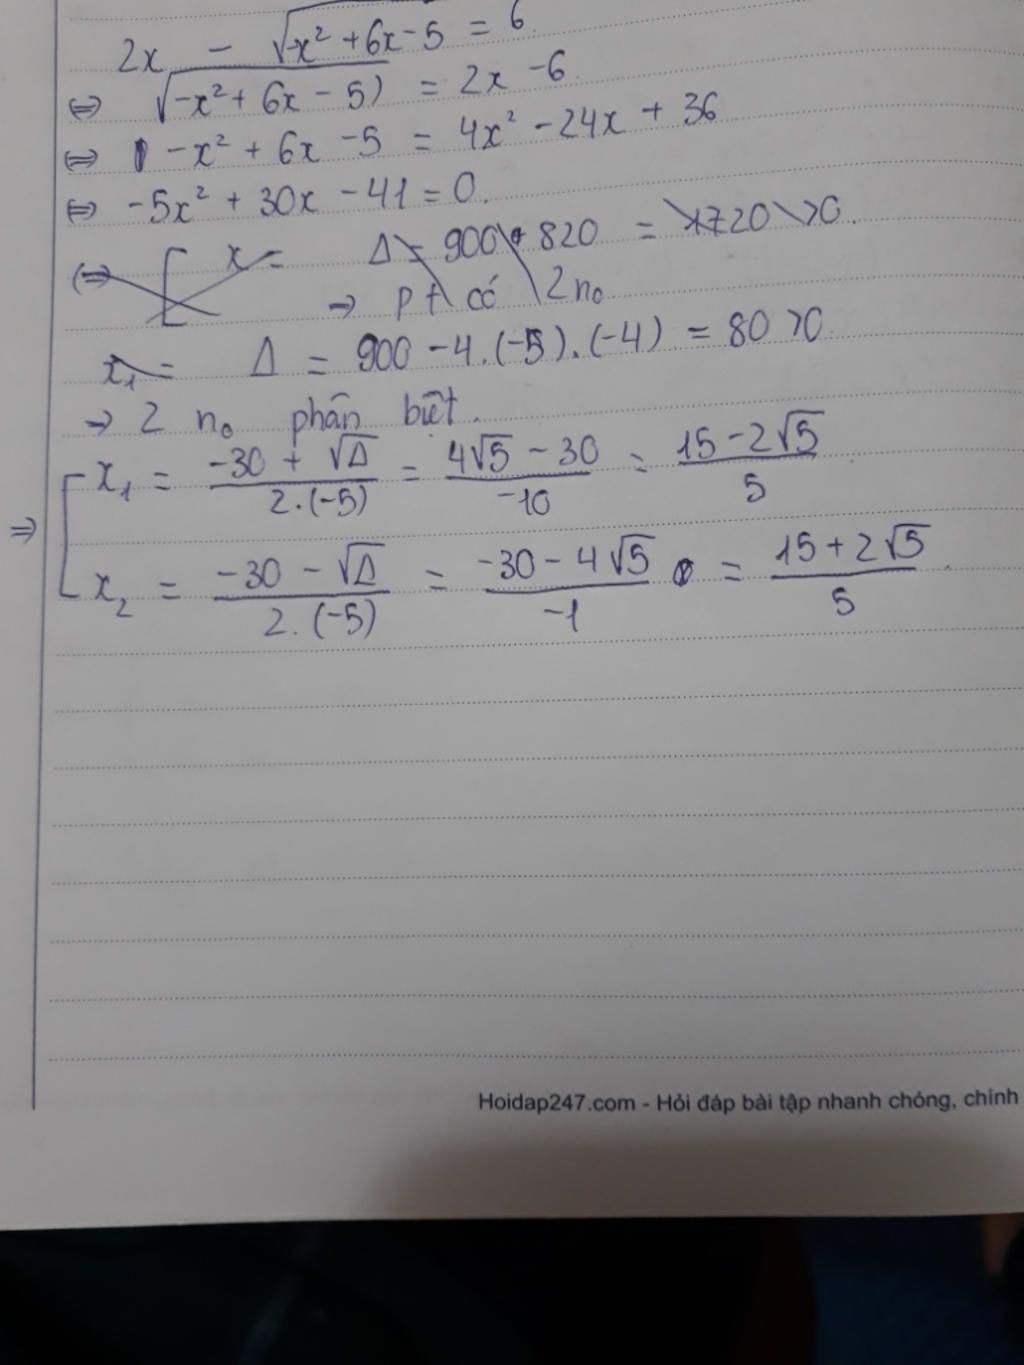 2x - √-x² + 6x - 5 = 6
⇔ √-x² + 6x - 5) = 2x - 6
⇔ -x² + 6x - 5 = 4x² - 24x + 36
⇔ -5x² + 30x - 41 = 0.
(⇒ [ x = Δ = 900 + 820 = 1720 > 0.
→ pt có 2 n₀
x₁ = Δ = 900 - 4.(-5).(-4) = 80 > 0.
→ 2 n₀ phân biệt.
⇒ [ x₁ = (-30 + √Δ)/(2.(-5)) = (4√5 - 30)/(-10) = (15 - 2√5)/5
x₂ = (-30 - √Δ)/(2.(-5)) = (-30 - 4√5)/(-1) = (15 + 2√5)/5.
Hoidap247.com - Hỏi đáp bài tập nhanh chóng, chính